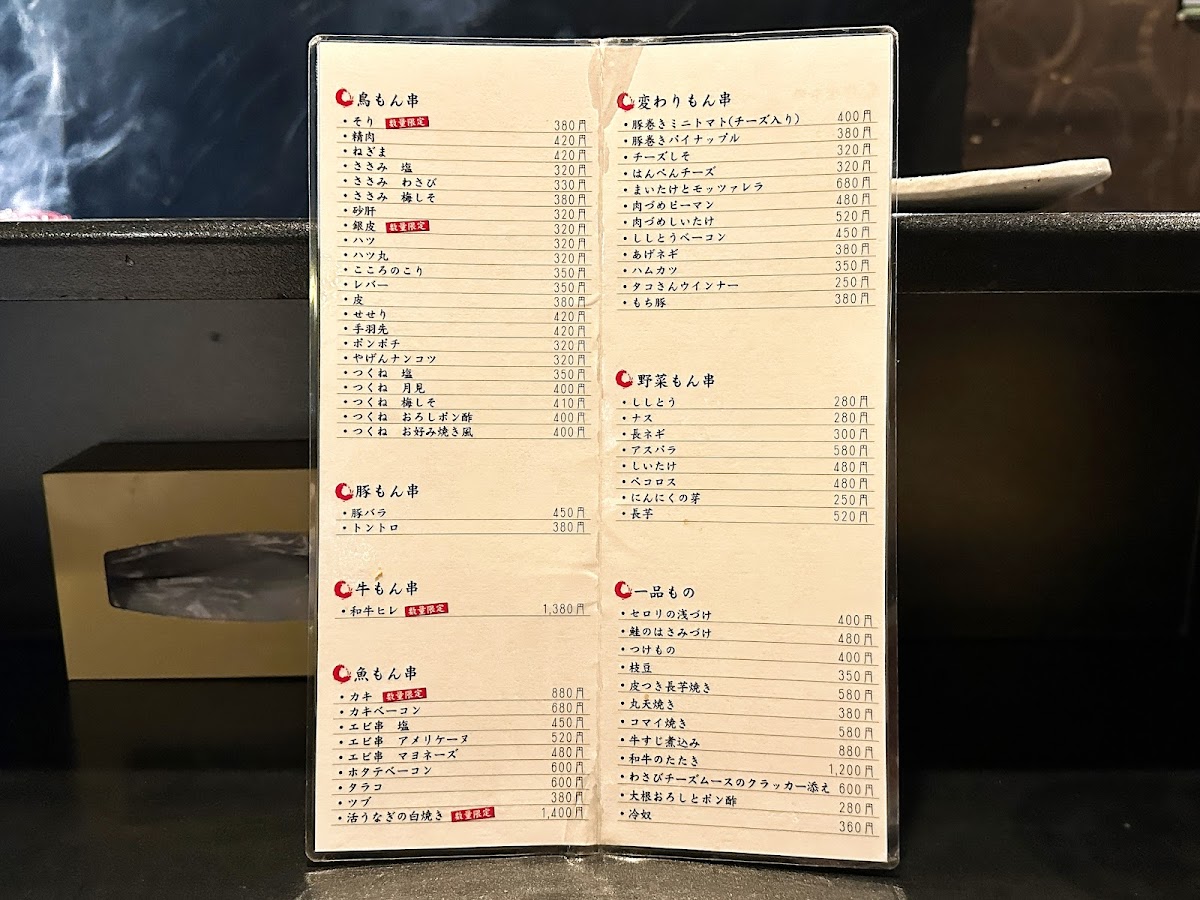 鳥もん串
・そり 数量限定 380円
・精肉 420円
・ねぎま 420円
・ささみ 塩 320円
・ささみ わさび 330円
・ささみ 梅しそ 380円
・砂肝 320円
・銀皮 数量限定 320円
・ハツ 320円
・ハツ丸 320円
・こころのこり 350円
・レバー 350円
・皮 380円
・せせり 420円
・手羽先 420円
・ボンボチ 320円
・やげんナンコツ 320円
・つくね 塩 350円
・つくね 月見 400円
・つくね 梅しそ 410円
・つくね おろしポン酢 400円
・つくね お好み焼き風 400円
豚もん串
・豚バラ 450円
・トントロ 380円
牛もん串
・和牛ヒレ 数量限定 1,380円
魚もん串
・カキ 数量限定 880円
・カキベーコン 680円
・エビ串 塩 450円
・エビ串 アメリケーヌ 520円
・エビ串 マヨネーズ 480円
・ホタテベーコン 600円
・タラコ 600円
・ツブ 380円
・活うなぎの白焼き 数量限定 1,400円
変わりもん串
・豚巻きミニトマト(チーズ入り) 400円
・豚巻きパイナップル 380円
・チーズしそ 320円
・はんぺんチーズ 320円
・まいたけとモッツァレラ 680円
・肉づめピーマン 480円
・肉づめしいたけ 520円
・ししとうベーコン 450円
・あげネギ 380円
・ハムカツ 350円
・タコさんウインナー 250円
・もち豚 380円
野菜もん串
・ししとう 280円
・ナス 280円
・長ネギ 300円
・アスパラ 580円
・しいたけ 480円
・ペコロス 480円
・にんにくの芽 250円
・長芋 520円
一品もの
・セロリの浅づけ 400円
・鮭のはさみづけ 480円
・つけもの 400円
・枝豆 350円
・皮つき長芋焼き 580円
・丸天焼き 380円
・コマイ焼き 580円
・牛すじ煮込み 880円
・和牛のたたき 1,200円
・わさびチーズムースのクラッカー添え 600円
・大根おろしとポン酢 280円
・冷奴 360円